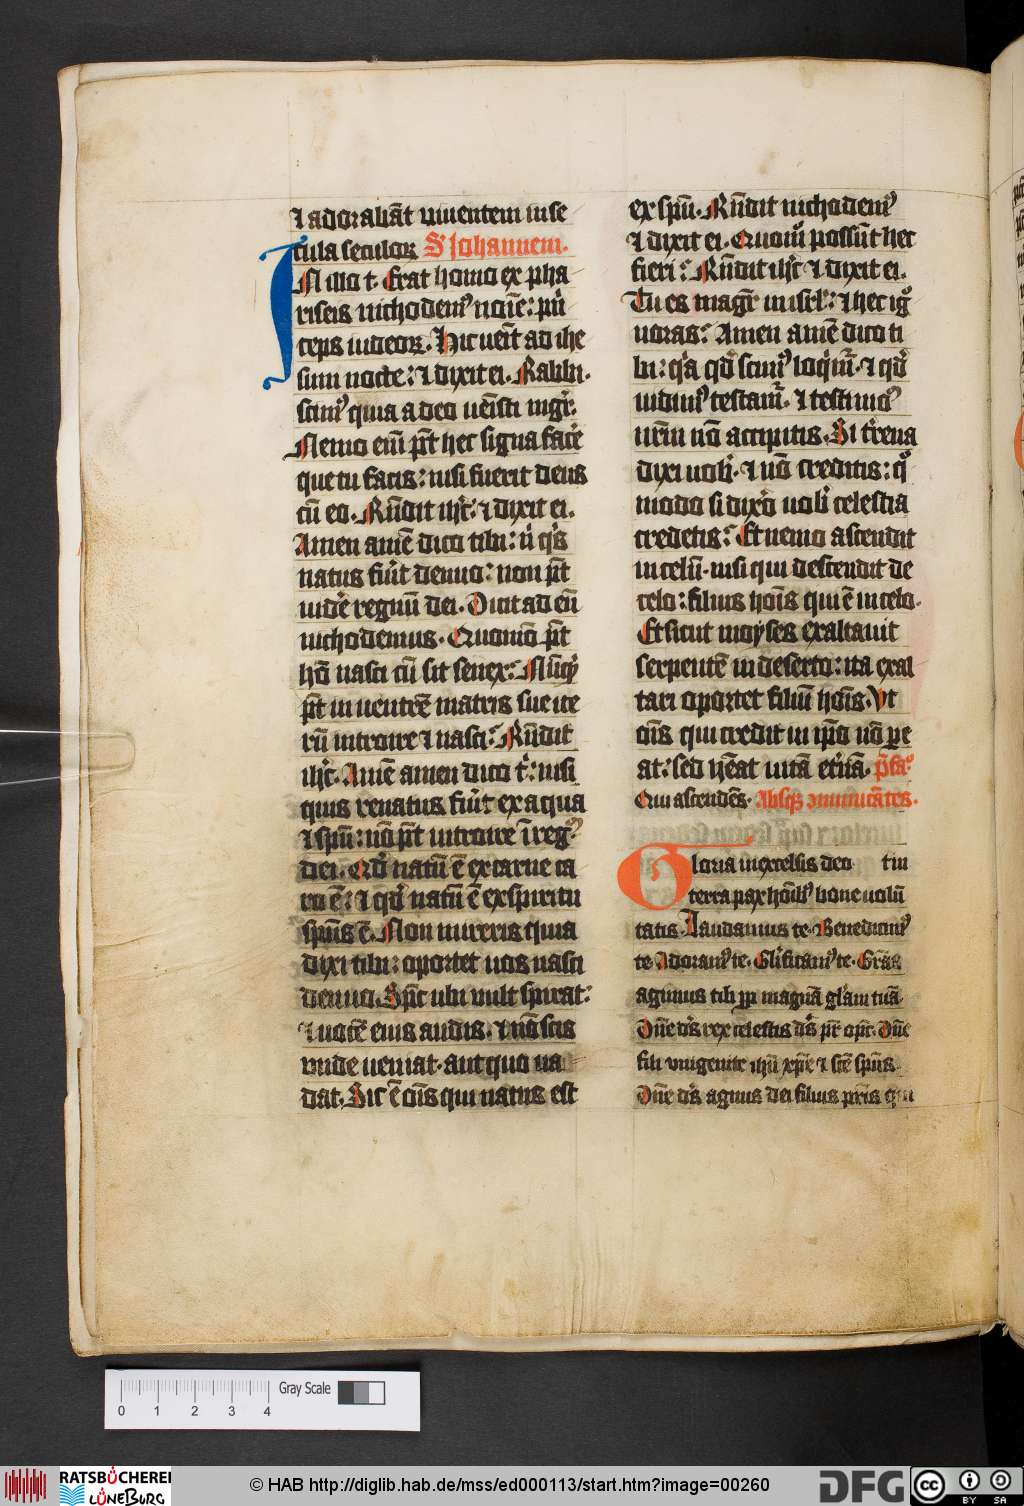 ⁊ adorabãt viuentem in se
cula seculoꝝ Sʳ Johannem.
IN illo t. Erat homo ex pha
riseis nichodemꝰ noĩe: pͥn
ceps iudeoꝝ. Hic ueñt ad ihe
sum nocte: ⁊ dixit ei. Rabbi.
scimꝰ quia a deo uẽisti mgr̃.
Nemo eni᷑ põt hec signa facẽ
que tu facis: nisi fuerit deus
cũ eo. Rñdit ihc̃ ⁊ dixit ei.
Amen amẽ dico tibi: ñ qͥs
natus fũit denuo: non põt
uidẽ regnũ dei. Dicit ad eũ
nichodemus. Quomõ põt
hõ nasci cũ sit senex: Nũqͥd
põt in uentrẽ matris sue ite
rũ introire ⁊ nasci: Rñdit
ihc̃. Amẽ amen dico t̾: nisi
quis renatus fũit ex aqua
⁊ spũ: nõ põt introire ĩ regͫ
dei. Qͩ natũ ẽ ex carne ca
ro ẽ: ⁊ qͩ natũ ẽ ex spiritu
spũs ẽ. Non mireris quia
dixi tibi: oportet uos nasci
denuo. Spc̃ ubi vult spirat:
⁊ uocẽ eius audis. ⁊ nõ scis
vnde ueniat. aut quo ua
dat. Sic ẽ oĩs qui natus est
ex spũ. Rñdit nichodemꝰ
⁊ dixit ei. Quomͦ possũt hec
fieri: Rñdit ihc̃ ⁊ dixit ei.
Tu es magr̃ in isrl̃: ⁊ hec igͦ
noras: Amen amẽ dico ti
bi: qͥa qͩ scimꝰ loqͥmr̃. ⁊ qͩ
uidimꝰ testamr̃. ⁊ testimoꝰ
nr̃m nõ accipitis. Si tr̃ena
dixi uob̾. ⁊ nõ creditis: qͦ
modo si dixo᷑ uob̾ celestia
credetis: Et nemo ascendit
in celũ. nisi qui descendit de
celo: filius hoĩs qui ẽ in celo.
Et sicut moyses exaltauit
serpentẽ in deserto: ita exal
tari oportet filiũ hoĩs. Vt
oĩs qui credit in ip̃o nõ ꝑe
at: sed hẽat uitã etñã. p̃fa.ͦ
Qui ascendẽs. Absqꝫ ↄmunicãtes.
Gloria in excelsis deo ⁊ in
terra pax hoĩbꝰ bone uolũ
tatis. Laudamus te. Benedicimꝰ
te. Adoramꝰ te. Glͥificamꝰ te. Grãs
agimus tibi ꝓp magnã glͣiam tuã.
Dñe dͤs rex celestis dͤs pr̃ opr̃. Dñe
fili vnigenite ihũ xp̃e ⁊ scẽ spũs.
Dñe dͤs agnus dei filius pr̃is qui
Gray Scale
0 1 2 3 4
RATSBÜCHEREI
LÜNEBURG
© HAB http://diglib.hab.de/mss/ed000113/start.htm?image=00260
DFG
cc
BY SA